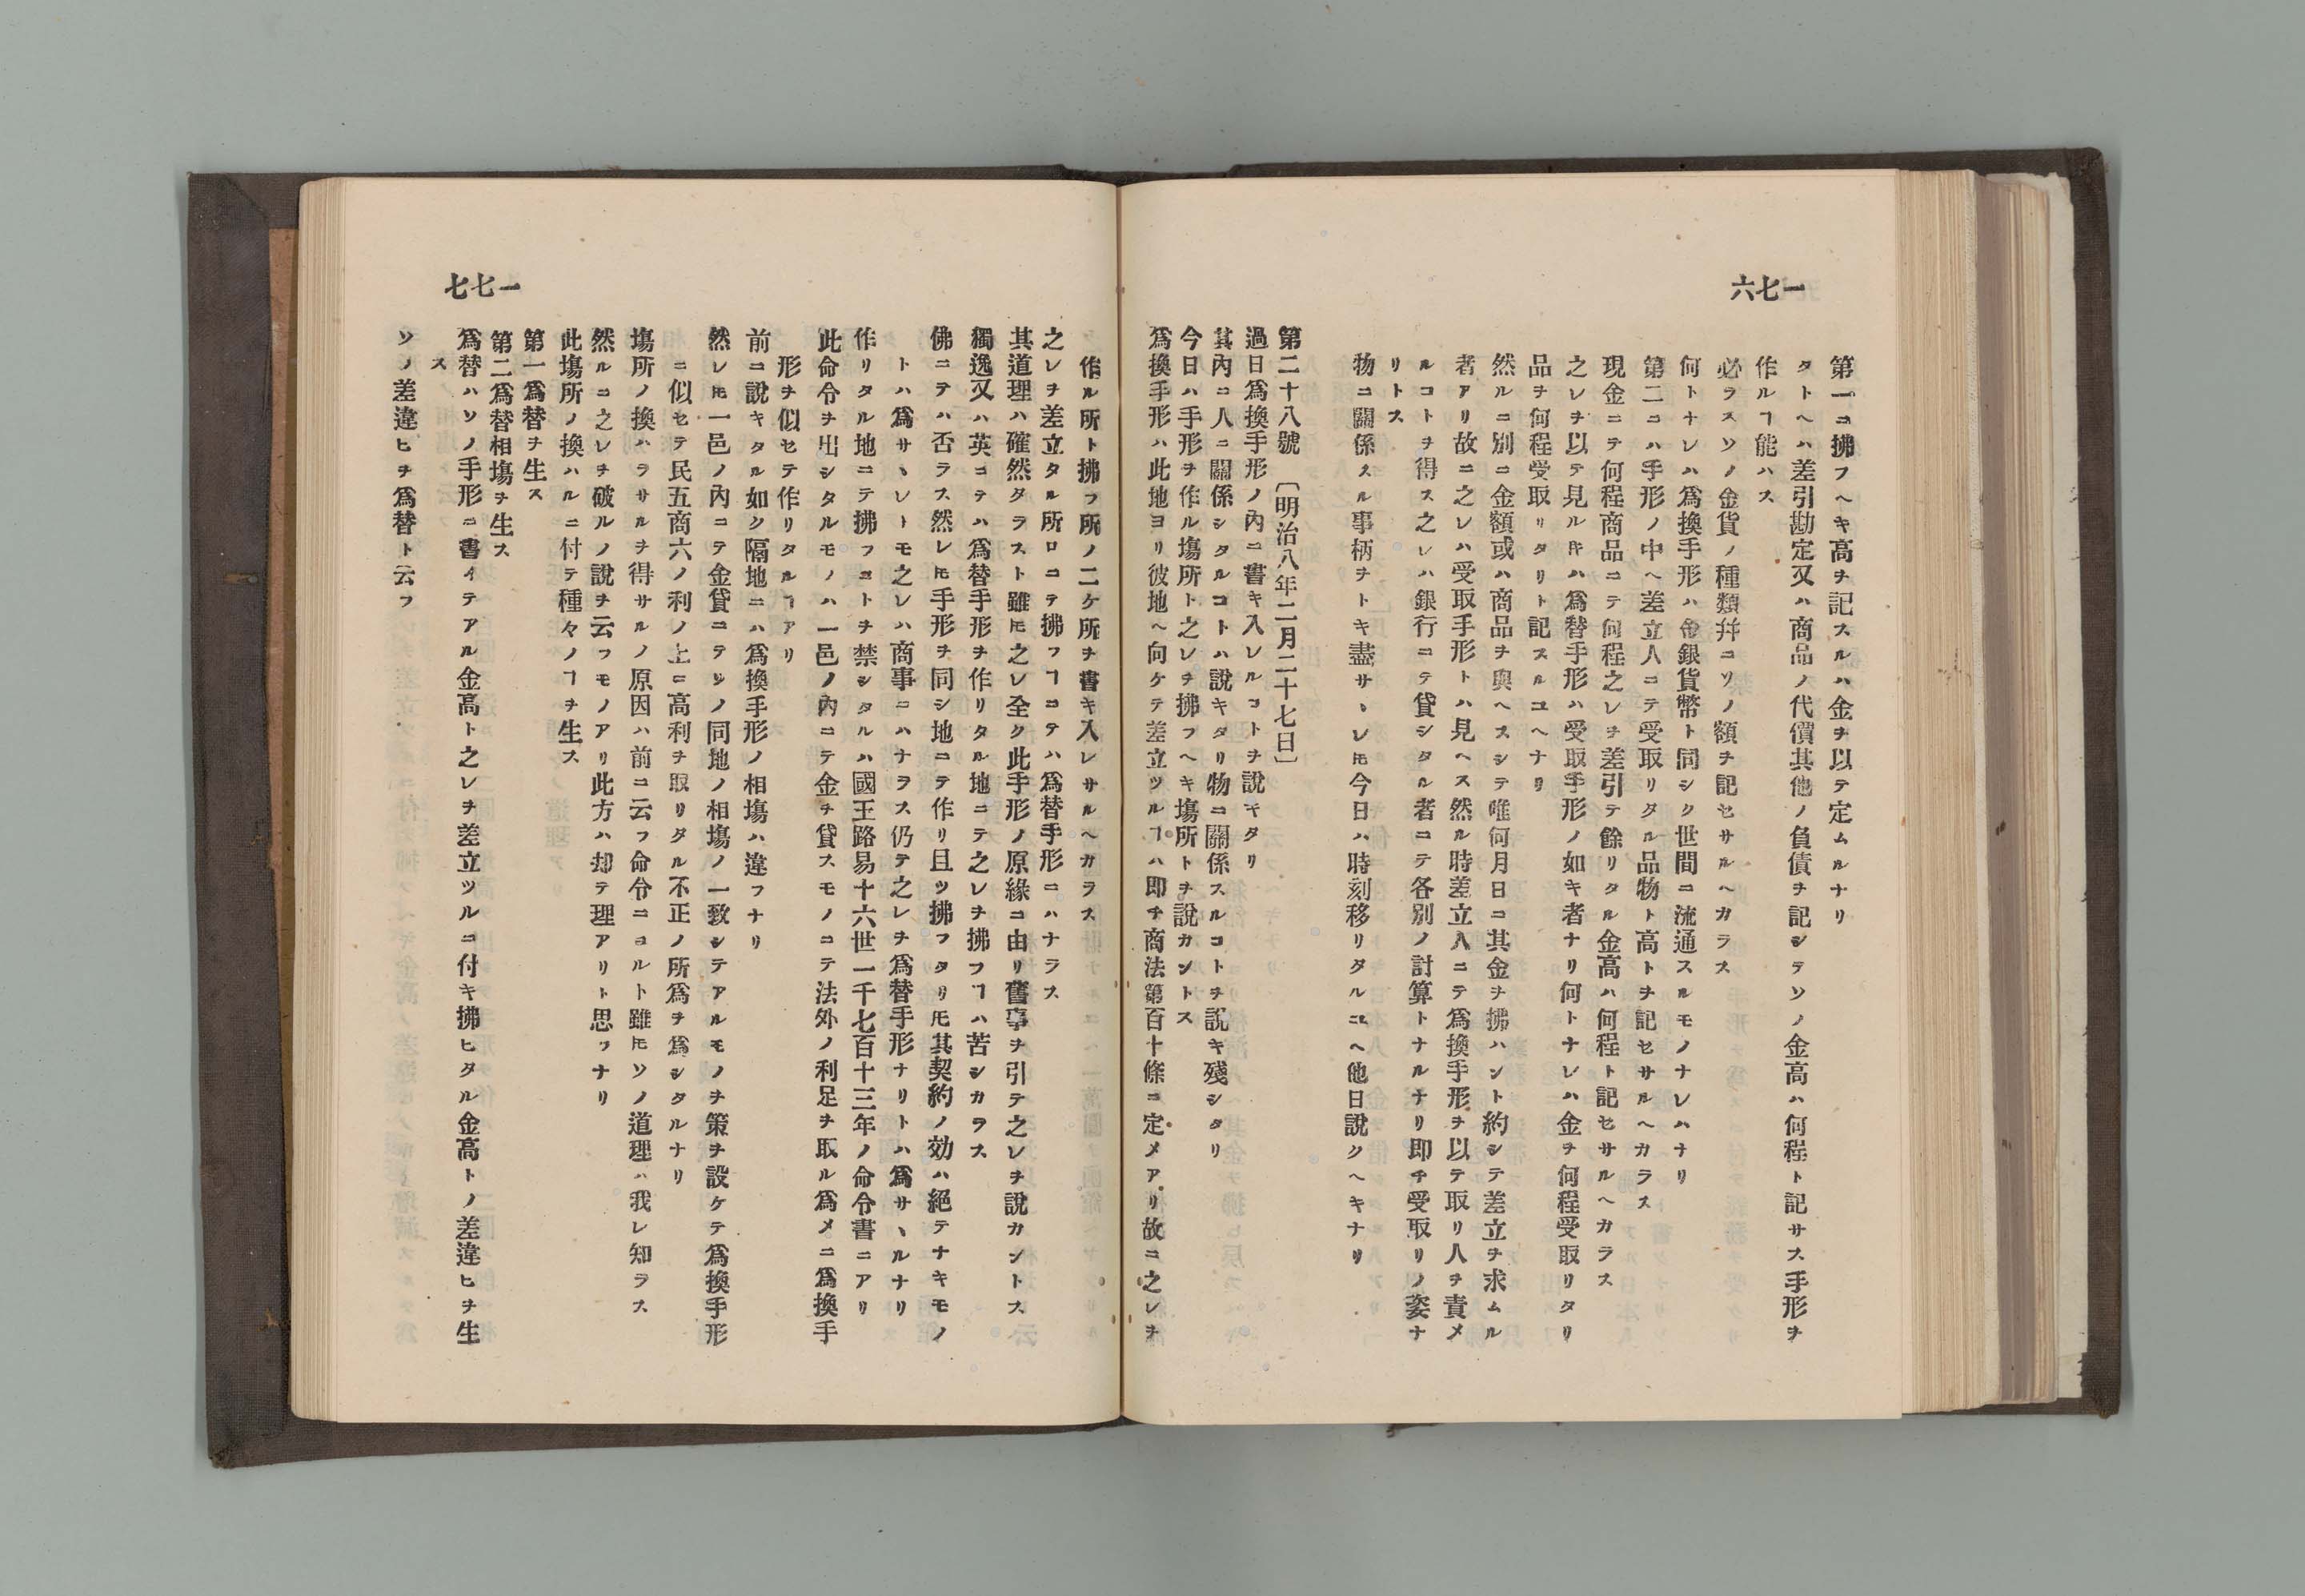 一七六
第一ニ拂フヘキ高ヲ記スルハ金ヲ以テ定ムルナリ
タトヘハ差引勘定又ハ商品ノ代價其他ノ負債ヲ記シテソノ金高ハ何程ト記サス手形ヲ
作ルヿ能ハス
必ラスソノ金貨ノ種類幷ニソノ額ヲ記セサルヘカラス
何トナレハ爲換手形ハ金銀貨幣ト同シク世間ニ流通スルモノナレハナリ
第二ニハ手形ノ中ヘ差立人ニテ受取リタル品物ト高トヲ記セサルヘカラス
現金ニテ何程商品ニテ何程之レヲ差引テ餘リタル金高ハ何程ト記セサルヘカラス
之レヲ以テ見ルキハ爲替手形ハ受取手形ノ如キ者ナリ何トナレハ金ヲ何程受取リタリ
品ヲ何程受取リタリト記スルユヘナリ
然ルニ別ニ金額或ハ商品ヲ與ヘスシテ唯何月日ニ其金ヲ拂ハント約シテ差立ヲ求ムル
者アリ故ニ之レハ受取手形トハ見ヘス然ル時差立人ニテ爲換手形ヲ以テ取リ人ヲ責メ
ルコトヲ得ス之レハ銀行ニテ貸シタル者ニテ各別ノ討算トナルナリ即チ受取リノ姿ナ
リトス
物ニ關係スル事柄ヲトキ盡サヽレ𪜈今日ハ時刻移リタルユヘ他日說クヘキナリ
第二十八號 〔明治八年二月二十七日〕
過日爲換手形ノ內ニ書キ入レルコトヲ說キタリ
其內ニ人ニ關係シタルコトハ說キタリ物ニ關係スルコトヲ說キ殘シタリ
今日ハ手形ヲ作ル塲所ト之レヲ拂フヘキ塲所トヲ說カントス
爲換手形ハ此地ヨリ彼地ヘ向ケテ差立ツルヿハ即チ商法第百十條ニ定メアリ故ニ之レヲ
一七七
作ル所ト拂フ所ノ二ケ所ヲ書キ入レサルヘカラス
之レヲ差立タル所ロニテ拂フヿニテハ爲替手形ニハナラス
其道理ハ確然タラスト雖𪜈之レ全ク此手形ノ原緣ニ由リ舊事ヲ引テ之レヲ說カントス
獨逸又ハ英ニテハ爲替手形ヲ作リタル地ニテ之レヲ拂フヿハ苦シカラス
佛ニテハ否ラス然レ𪜈手形ヲ同シ地ニテ作リ且ツ拂フタリ𪜈其契約ノ効ハ絕テナキモノ
トハ爲サヽレトモ之レハ商事ニハナラス仍テ之レヲ爲替手形ナリトハ爲サヽルナリ
作リタル地ニテ拂フコトヲ禁シタルハ國王路易十六世一千七百十三年ノ命令書ニアリ
此命令ヲ出シタルモノハ一邑ノ內ニテ金ヲ貸スモノニテ法外ノ利足ヲ取ル爲メニ爲換手
形ヲ似セテ作リタルヿアリ
前ニ說キタル如ク隔地ニハ爲換手形ノ相塲ハ違フナリ
然レ𪜈一邑ノ內ニテ金貸ニテソノ同地ノ相塲ノ一致シテアルモノヲ策ヲ設ケテ爲換手形
ニ似セテ民五商六ノ利ノ上ニ高利ヲ取リタル不正ノ所爲ヲ爲シタルナリ
塲所ノ換ハラサルヲ得サルノ原因ハ前ニ云フ命令ニヨルト雖𪜈ソノ道理ハ我レ知ラス
然ルニ之レヲ破ルノ說ヲ云フモノアリ此方ハ却テ理アリト思フナリ
此塲所ノ換ハルニ付テ種々ノヿヲ生ス
第一爲替ヲ生ス
第二爲替相塲ヲ生ス
爲替ハソノ手形ニ書イテアル金高ト之レヲ差立ツルニ付キ拂ヒタル金高トノ差違ヒヲ生
ス
ソノ差違ヒヲ爲替ト云フ